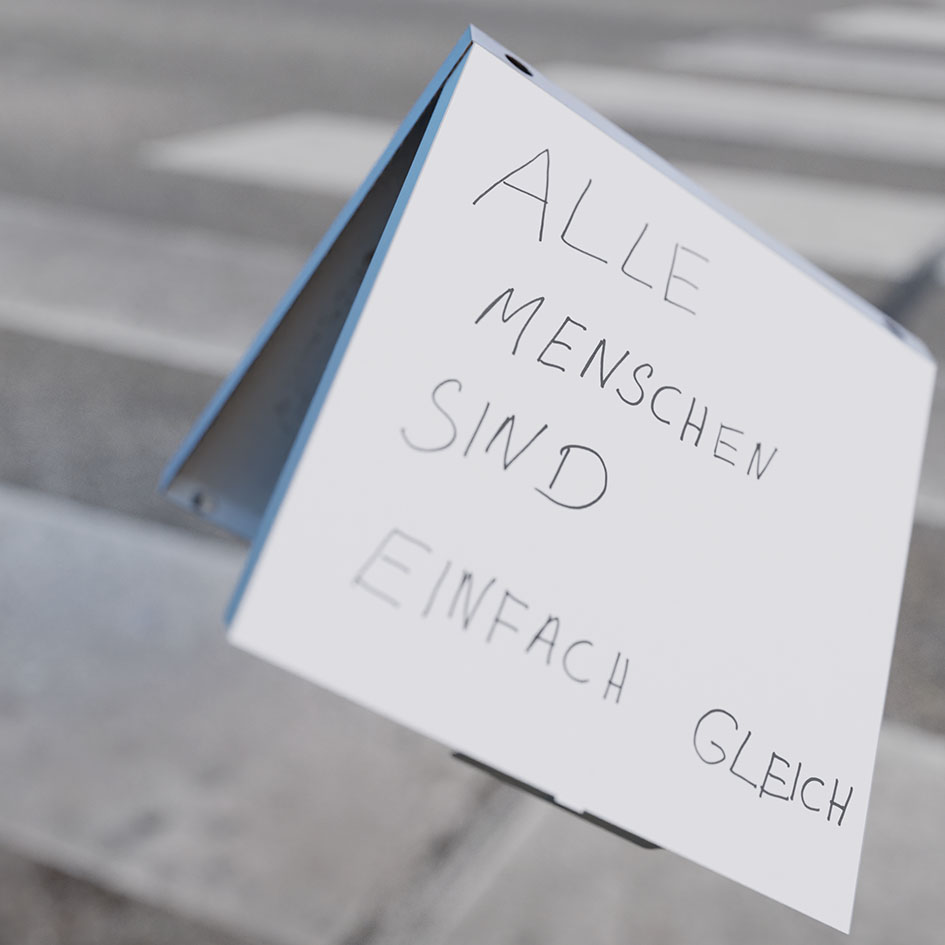 ALLE
MENSCHEN
SIND
EINFACH
GLEICH